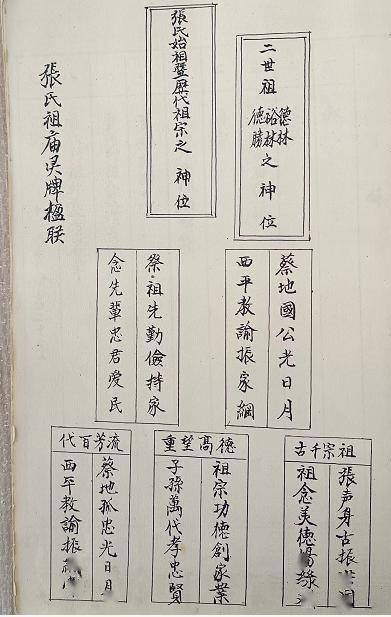 二世祖德林裕林德勝之神位
張氏始祖暨歷代祖宗之神位
張氏祖庙灵牌楹联
蔡地國公光日月
西平教諭振家綱
祭祖先勤儉持家
念先輩忠君愛民
祖宗千古
張身古振
祖念美德
德髙望重
祖宗功德創家業
子孫萬代孝忠賢
流芳百代
蔡地孤忠光日月
西平教諭振